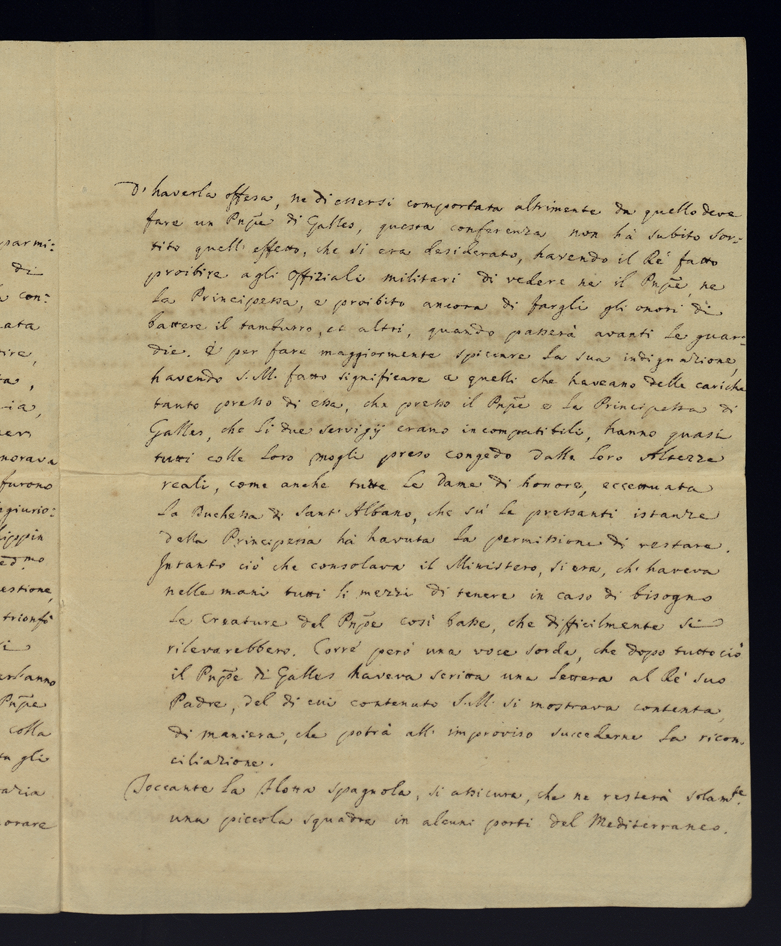 parmi:
di
con:
ata
tire,
ta,
ia,
morava
furono
ngiurio:
lippin
ed.mo
estione,
trionfi
si
Pnp̃e
colla
gli
azia
orare
D'haverla offesa, ne di essersi comportata altrimente da quello deve
fare un Pnp̃e di Galles, questa conferenza non hà subito sor-
tito quell'effetto, che si era desiderato, havendo il Ré fatto
proibire agli offiziali militari di vedere ne il Pnp̃e, ne
La Principessa, e proibito ancora di fargli gli onori di
battere il tamburro, et altri, quando passerà avanti Le guar-
die. E per fare maggiormente spiccare La sua indignazione,
havendo S.M. fatto significare a quelli che haveano delle cariche
tanto presso di essa, che presso il Pnp̃e e La Principessa di
Galles, che Li due servigij erano incompatibili, hanno quasi
tutti colle Loro mogli preso congedo dalle Loro Altezze
reali, come anche tutte Le Dame di honore, eccettuata
La Duchessa di Sant'Albano, che sù Le pressanti istanze
della Principessa hà havuta La permissione di restare.
Intanto ciò che consolava il Ministero, si era, ch'haveva
nelle mani tutti li mezzi di tenere in caso di bisogno
Le Creature del Pnp̃e così basse, che difficilmente si
rileverebbero. Corre però una voce sorda, che dopo tutto ciò
il Pnp̃e di Galles haveva scritta una Lettera al Ré suo
Padre, del di cui contenuto S.M. si mostrava contenta,
di maniera, che potrà all'improviso succederne La ricon-
ciliazione.
Toccante La flotta spagnola, si assicura, che ne resterà solam.te
una piccola squadra in alcuni porti del Mediterraneo.